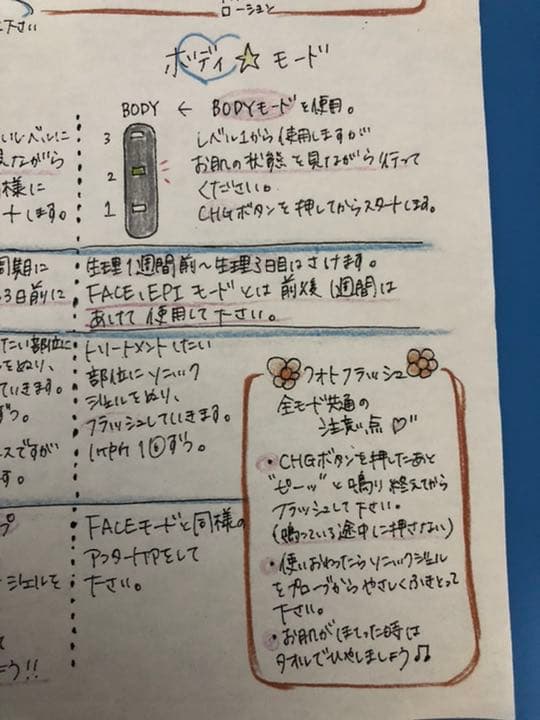 ローションと
下さい
ボディ☆モード
BODY ← BODYモードを使用。
3
2
1
レベル1から使用しますが
お肌の状態を見ながら行って
ください。
CHGボタンを押してからスタートします。
いレベルに
見ながら
同様に
トします。
同期に
3日前に
生理1週間前～生理3日目はさけます。
FACE、EPIモードとは前後1週間は
あけて使用して下さい。
たい部位に
をぬり、
ていきます。
ずつ。
スですが
ます。
トリートメントしたい
部位にソニック
ジェルをぬり、
フラッシュしていきます。
1ヶ所1回ずつ。
ジェルを
う!!
FACEモードと同様の
アフターケアをして
下さい。
フォトフラッシュ
全モード共通の
注意点♡
・CHGボタンを押したあと
"ピーッ"と鳴り終えてから
フラッシュして下さい。
(鳴っている途中に押さない)
・使いおわったらソニックジェル
をプローブからやさしくふきとって
下さい。
・お肌がほてった時は
タオルでひやしましょう♫